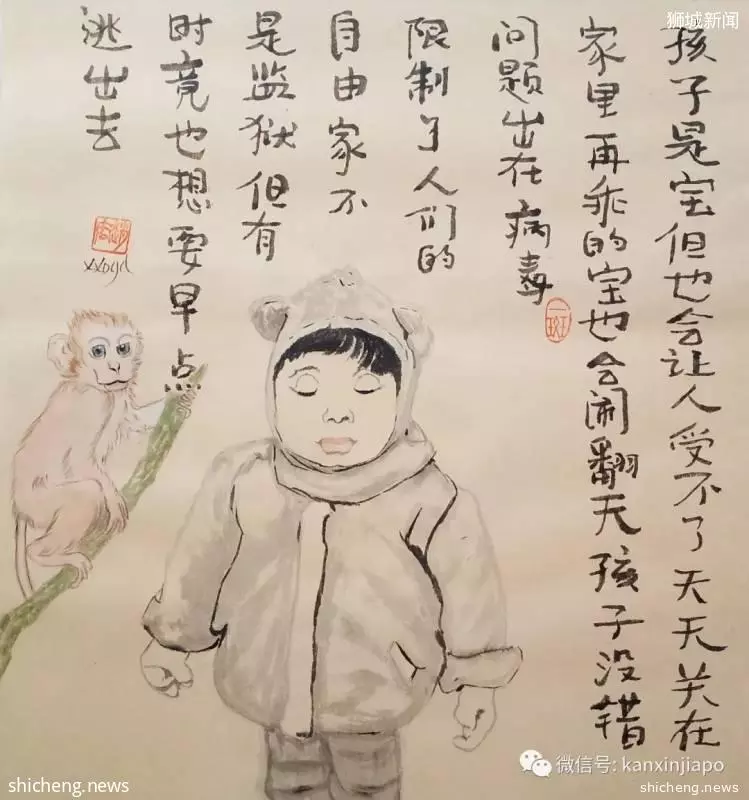 狮城新闻
孩子是宝但也会让人受不了天天关在
家里再乖的宝也会闹翻天孩子没错
问题出在病毒
限制了人们的
自由家不
是监狱但有
时竟也想要早点
逃出去
微信号: kanxinjiapo
shicheng.news
shicheng.news